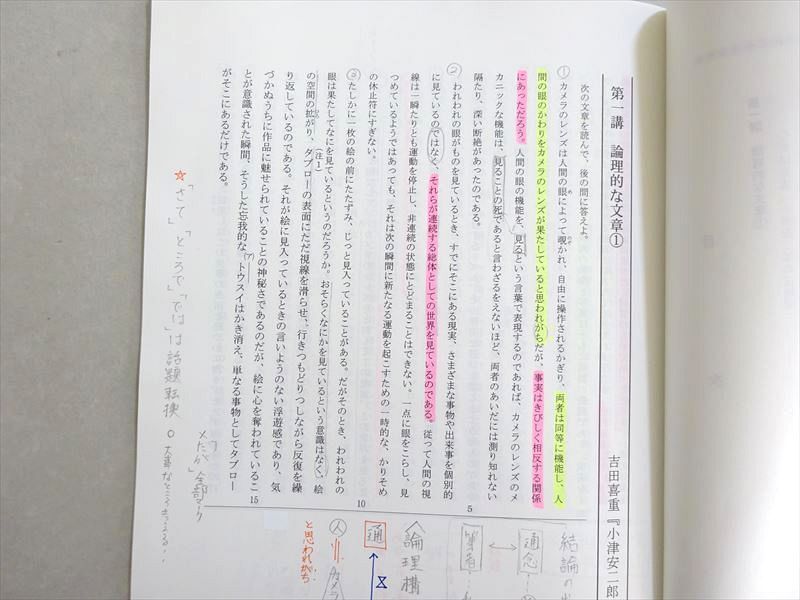 第一講 論理的な文章①
吉田喜重『小津安二郎
次の文章を読んで、後の問に答えよ。
① カメラのレンズは人間の眼によって覗かれ、自由に操作されるかぎり、両者は同等に機能し、人
間の眼のかわりをカメラのレンズが果たしていると思われがちだが、事実はきびしく相反する関係
にあっただろう。人間の眼の機能を、見るという言葉で表現するのであれば、カメラのレンズのメ
カニックな機能は、見ることの死であると言わざるをえないほど、両者のあいだには測り知れない
隔たり、深い断絶があったのである。
② われわれの眼がものを見ているとき、すでにそこにある現実、さまざまな事物や出来事を個別的
に見ているのではなく、それらが連続する総体としての世界を見ているのである。従って人間の視
線は一瞬たりとも運動を停止し、非連続の状態にとどまることはできない。一点に眼をこらし、見
つめているようではあっても、それは次の瞬間に新たなる運動を起こすための一時的な、かりそめ
の休止符にすぎない。
③ たしかに一枚の絵の前にたたずみ、じっと見入っていることがある。だがそのとき、われわれの
眼は果たしてなにを見ているというのだろうか。おそらくなにかを見ているという意識はなく、絵
の空間の拡がり、タブローの表面にただ視線を滑らせ、行きつもどりつしながら反復を繰
(注1)
り返しているのである。それが絵に見入っているときの言いようのない浮遊感であり、気
づかぬうちに作品に魅せられていることの神秘さであるのだが、絵に心を奪われているこ
とが意識された瞬間、そうした忘我的な(ア)トウスイはかき消え、単なる事物としてタブロー
がそこにあるだけである。
5
10
15
☆「さて」「ところで」「では」は話題転換
結論の
通念
筆者
〈論理構
通
人
カメラ
と思われがち